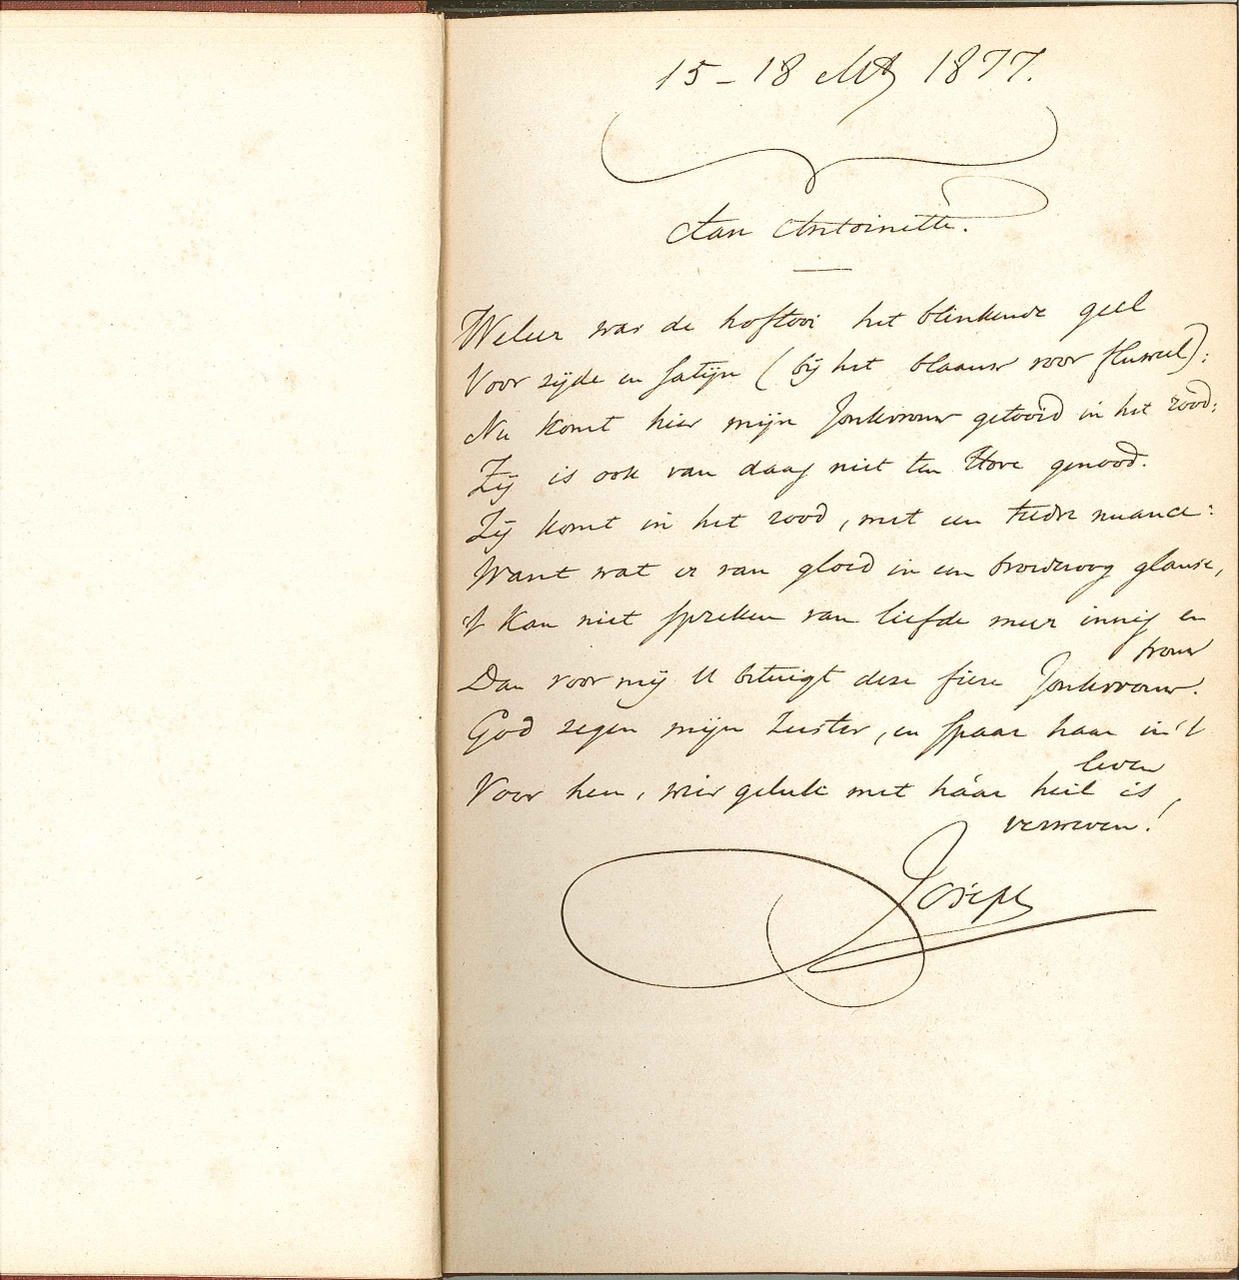 15–18 Mt 1877.
Aan Antoinette.
Weleer was de hoftooi het blinkende geel
Voor zijde en satijn (bij het blaauw voor fluweel):
Nu komt hier mijn Jonkvrouw getooid in het rood:
Zij is ook van daag niet ten Hove genood.
Zij komt in het rood, met een teedre nuance:
Want wat er van gloed in een glanse,
't Kan niet spreken van liefde meer innig en
trouw
Dan voor mij U betuigt deze fiere Jonkvrouw.
God zegen mijn Zuster, en spaar haar in 't
leven
Voor hen, wier geluk met háar heil is
verweven!
Joseph